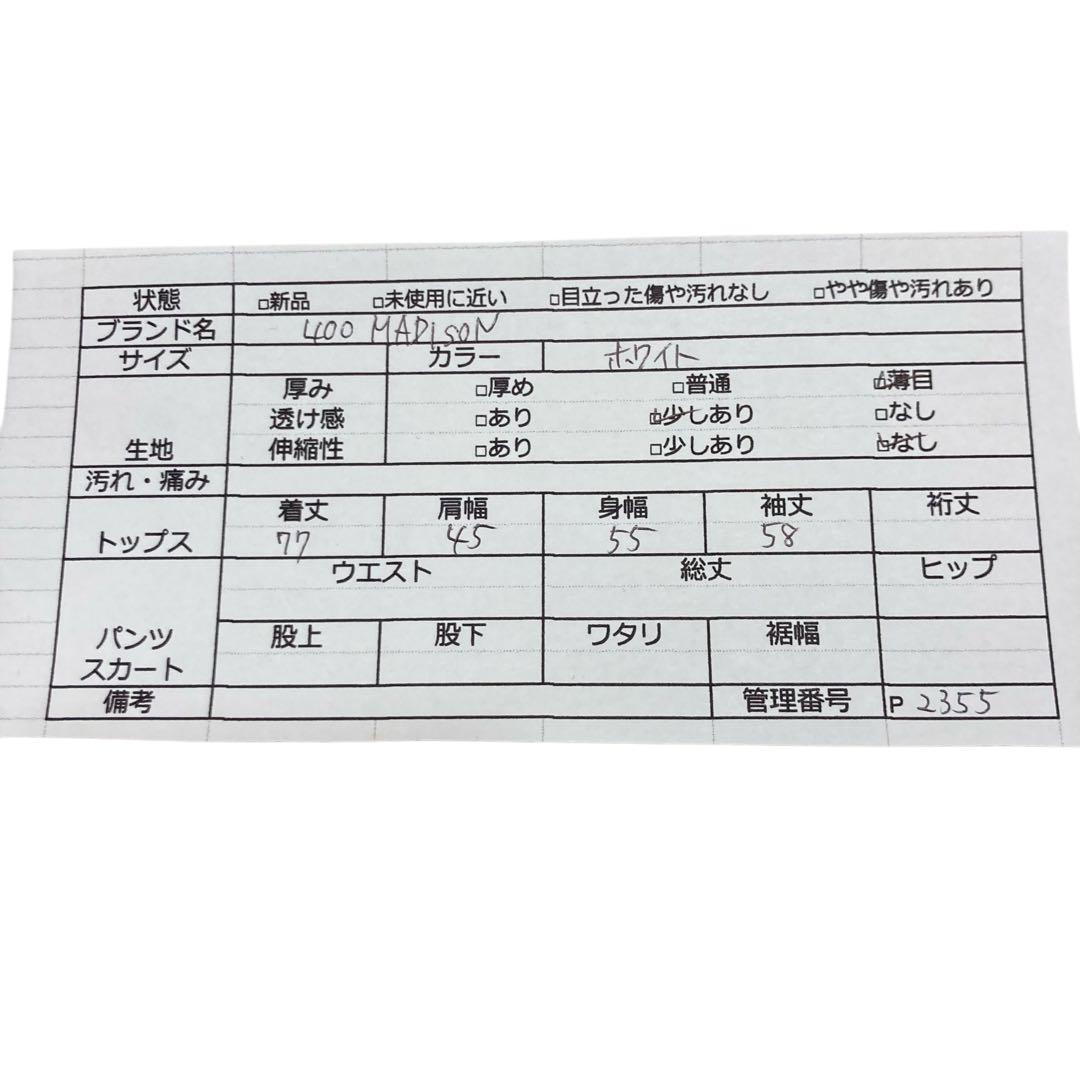 状態 □新品 □未使用に近い □目立った傷や汚れなし □やや傷や汚れあり
ブランド名 400 MADISON
サイズ カラー ホワイト
厚み □厚め □普通 □薄目
透け感 □あり □少しあり □なし
生地 伸縮性 □あり □少しあり □なし
汚れ・痛み
着丈 肩幅 身幅 袖丈 裄丈
トップス 77 45 55 58
ウエスト 総丈 ヒップ
パンツ 股上 股下 ワタリ 裾幅
スカート
備考 管理番号 P 2355